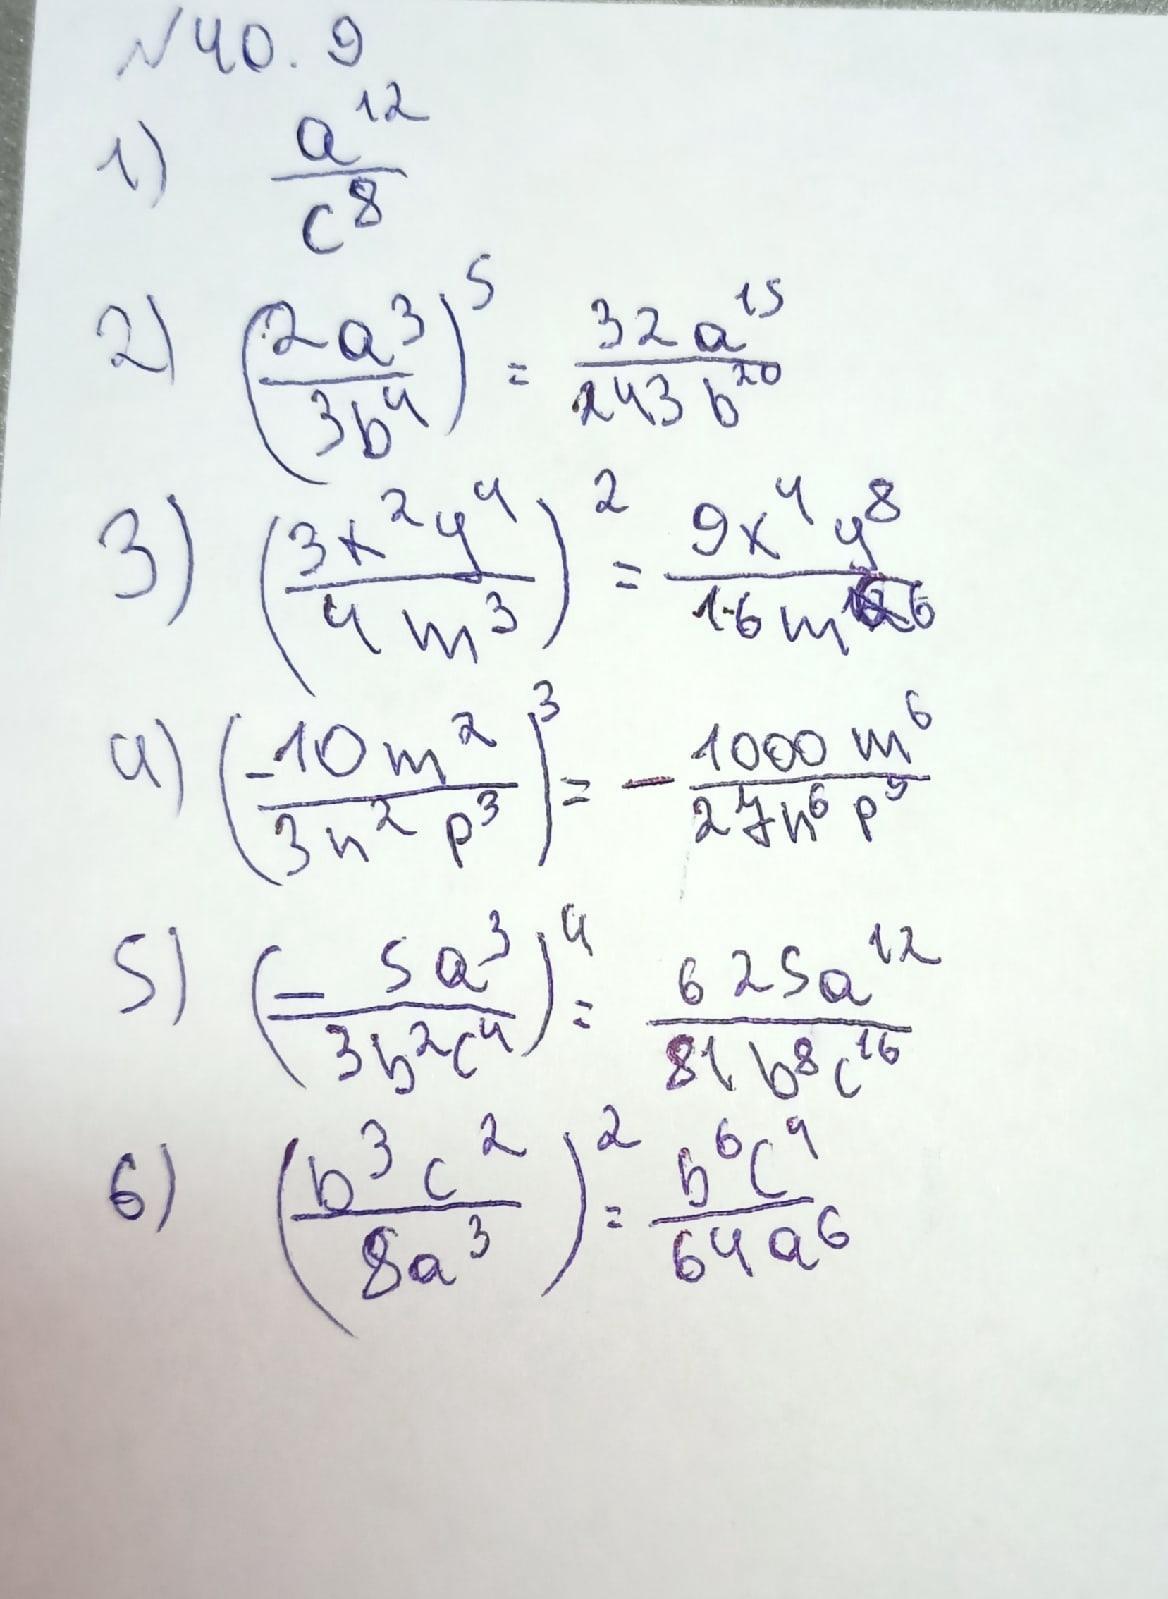 №40.9
1) a¹²/c⁸
2) (2a³/3b⁴)⁵ = 32a¹⁵/243b²⁰
3) (3x²y⁴/4m³)² = 9x⁴y⁸/16m⁶
4) (-10m²/3n²p³)³ = -1000m⁶/27n⁶p⁹
5) (-5a³/3b²c⁴)⁴ = 625a¹²/81b⁸c¹⁶
6) (b³c²/8a³)² = b⁶c⁴/64a⁶